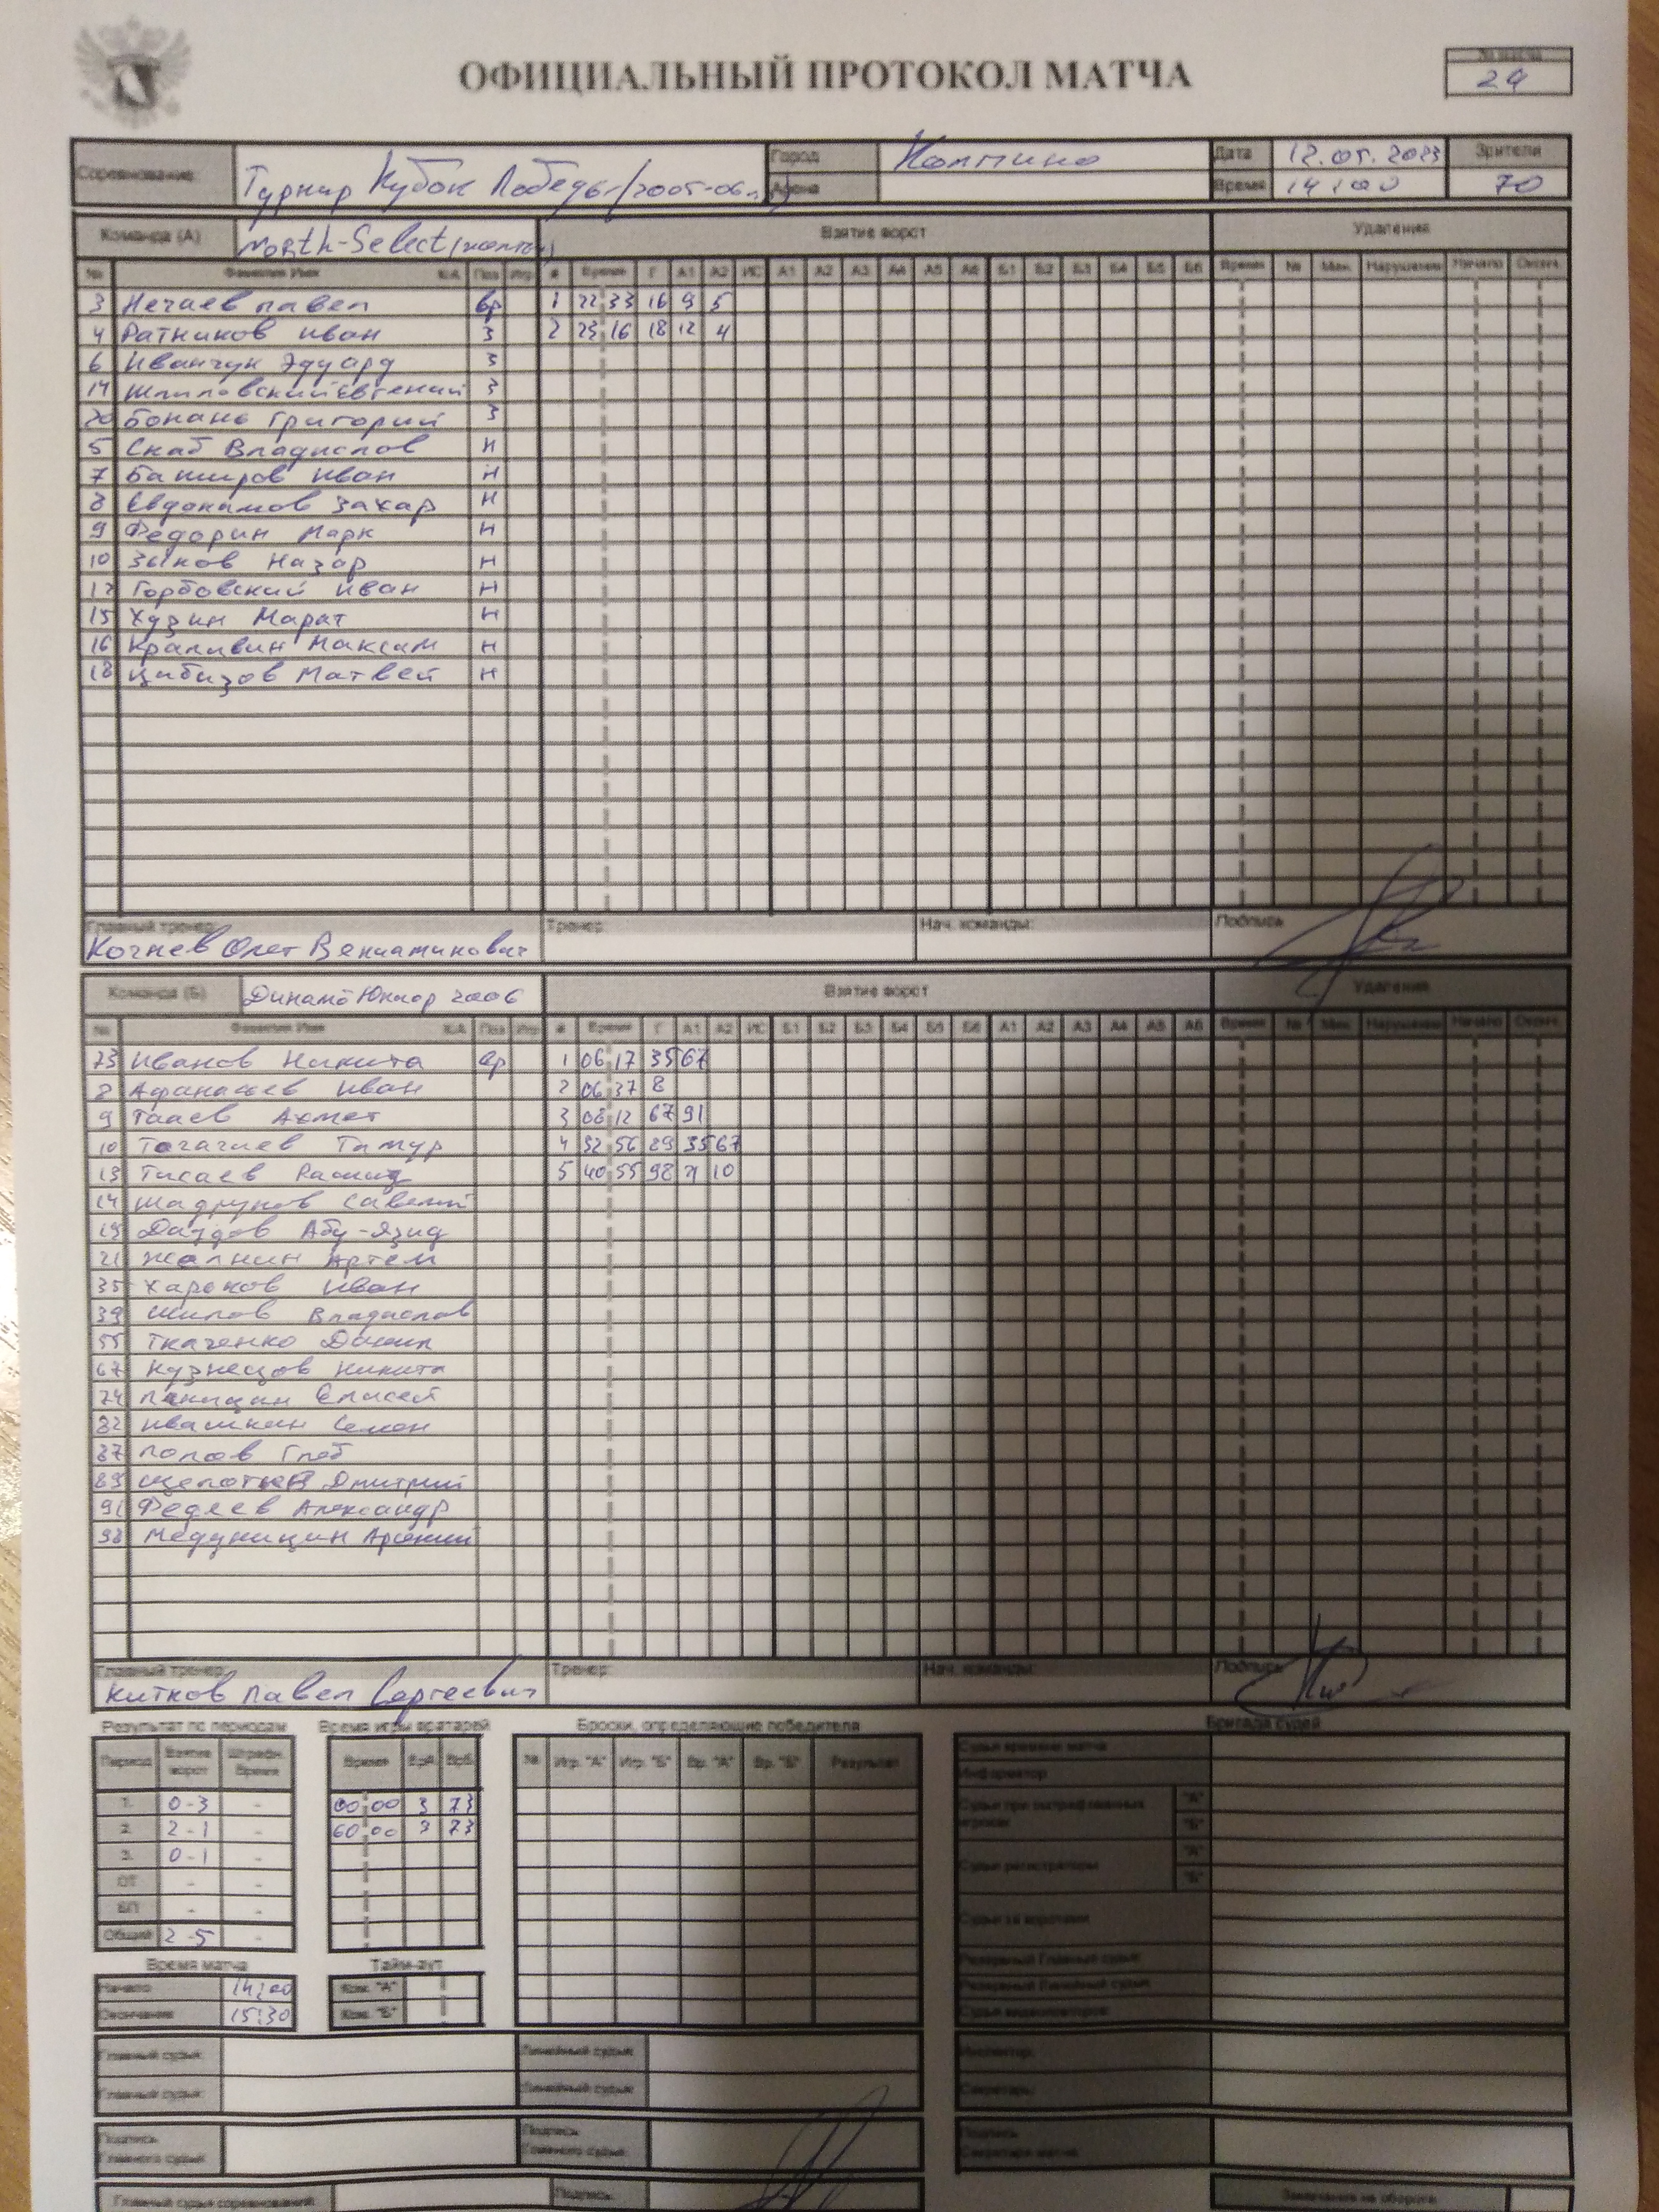 ОФИЦИАЛЬНЫЙ ПРОТОКОЛ МАТЧА
№ матча
24
Соревнование: Турнир Кубок Победы /2005-06г.р/ Город Колпино Дата 12.05.2023 Зрители
Арена Время 14:00 70
Команда (А) North-Select (желтые) Взятие ворот Удаления
№ Фамилия Имя К/А Поз Игр # Время Г А1 А2 ИС А1 А2 А3 А4 А5 А6 Б1 Б2 Б3 Б4 Б5 Б6 Время № Мин. Нарушение Начало Оконч.
3 Нечаев Павел вр 1 22 33 16 9 5
4 Ратников Иван З 2 23 16 18 12 4
6 Иванчук Эдуард З
14 Шпиловский Евгений З
20 Бонань Григорий З
5 Скаб Владислав Н
7 Баширов Иван Н
8 Евдокимов Захар Н
9 Федорин Марк Н
10 Зыков Назар Н
12 Горбовский Иван Н
15 Хузин Марат Н
16 Крапивин Максим Н
18 Цибизов Матвей Н
Главный тренер: Тренер: Нач. команды: Подпись
Кочнев Олег Вениаминович
Команда (Б) Динамо Юниор 2006 Взятие ворот Удаления
№ Фамилия Имя К/А Поз Игр # Время Г А1 А2 ИС Б1 Б2 Б3 Б4 Б5 Б6 А1 А2 А3 А4 А5 А6 Время № Мин. Нарушение Начало Оконч.
73 Иванов Никита вр 1 06 17 35 67
8 Афанасьев Иван 2 06 37 8
9 Тааев Ахмет 3 08 12 67 91
10 Точачиев Тимур 4 32 56 89 35 67
13 Тисаев Рашид 5 40 55 98 21 10
14 Шадрунов Савелий
19 Даудов Абу-Язид
21 Жалнин Артём
35 Харьков Иван
39 Шилов Владислав
55 Ткаченко Даниил
67 Кузнецов Никита
74 Елисей
82 Ивашкин Семён
87 Попов Глеб
89 Щепотьев Дмитрий
91 Федяев Александр
98 Медуницин Арсений
Главный тренер: Тренер: Нач. команды: Подпись
Китков Павел Сергеевич
Результат по периодам Время игры вратарей Броски, определяющие победителя Бригада судей
Период Взятие ворот Штрафн. Время Время ВрА ВрБ № Игр. "А" Игр. "Б" Вр. "А" Вр. "Б" Результат
Судья времени матча
Информатор
1. 0-3 - 00 00 3 73
2. 2-1 - 60 00 3 73
3. 0-1 -
ОТ - -
БП - -
Общий 2-5 -
Судьи при оштрафованных игроках "А" "Б"
Судьи регистраторы "А" "Б"
Судьи за воротами
Резервный Главный судья:
Резервный Линейный судья:
Судья видеоповторов:
Время матча Тайм-аут
Начало 14:00 Ком. "А"
Окончание 15:30 Ком. "Б"
Главный судья: Линейный судья: Инспектор:
Главный судья: Линейный судья: Секретарь:
Подпись Главного судьи Подпись Главного судьи Подпись Секретаря матча
Главный судья соревнований Подпись Замечания на обороте